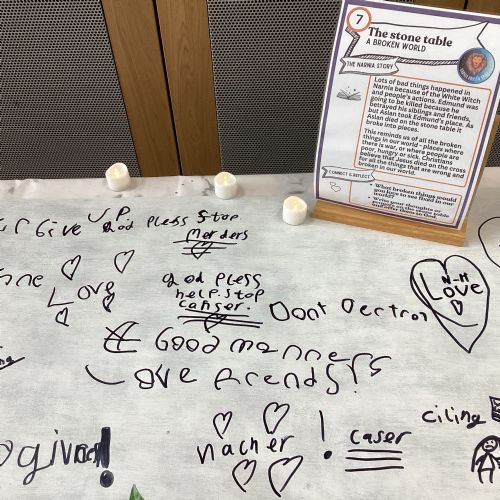 7
The stone table
A BROKEN WORLD
THE NARNIA STORY
Lots of bad things happened in
Narnia because of the White Witch
and people's actions. Edmund was
going to be killed because he
betrayed his siblings and friends,
but Aslan took Edmund's place. As
Aslan died on the stone table it
broke into pieces.
This reminds us of all the broken
things in our world - places where
there is war, or where people are
poor, hungry or sick. Christians
believe that Jesus died on the cross
for all the things that are wrong and
broken in our world.
CONNECT & REFLECT
• What broken things would
you love to see fixed in our
Give UP
God pless stop
merders
Love
god pless
help.stop
canser.
Dont
N-H
Love
Good manners
Love frends
nacher !
caser
ciling